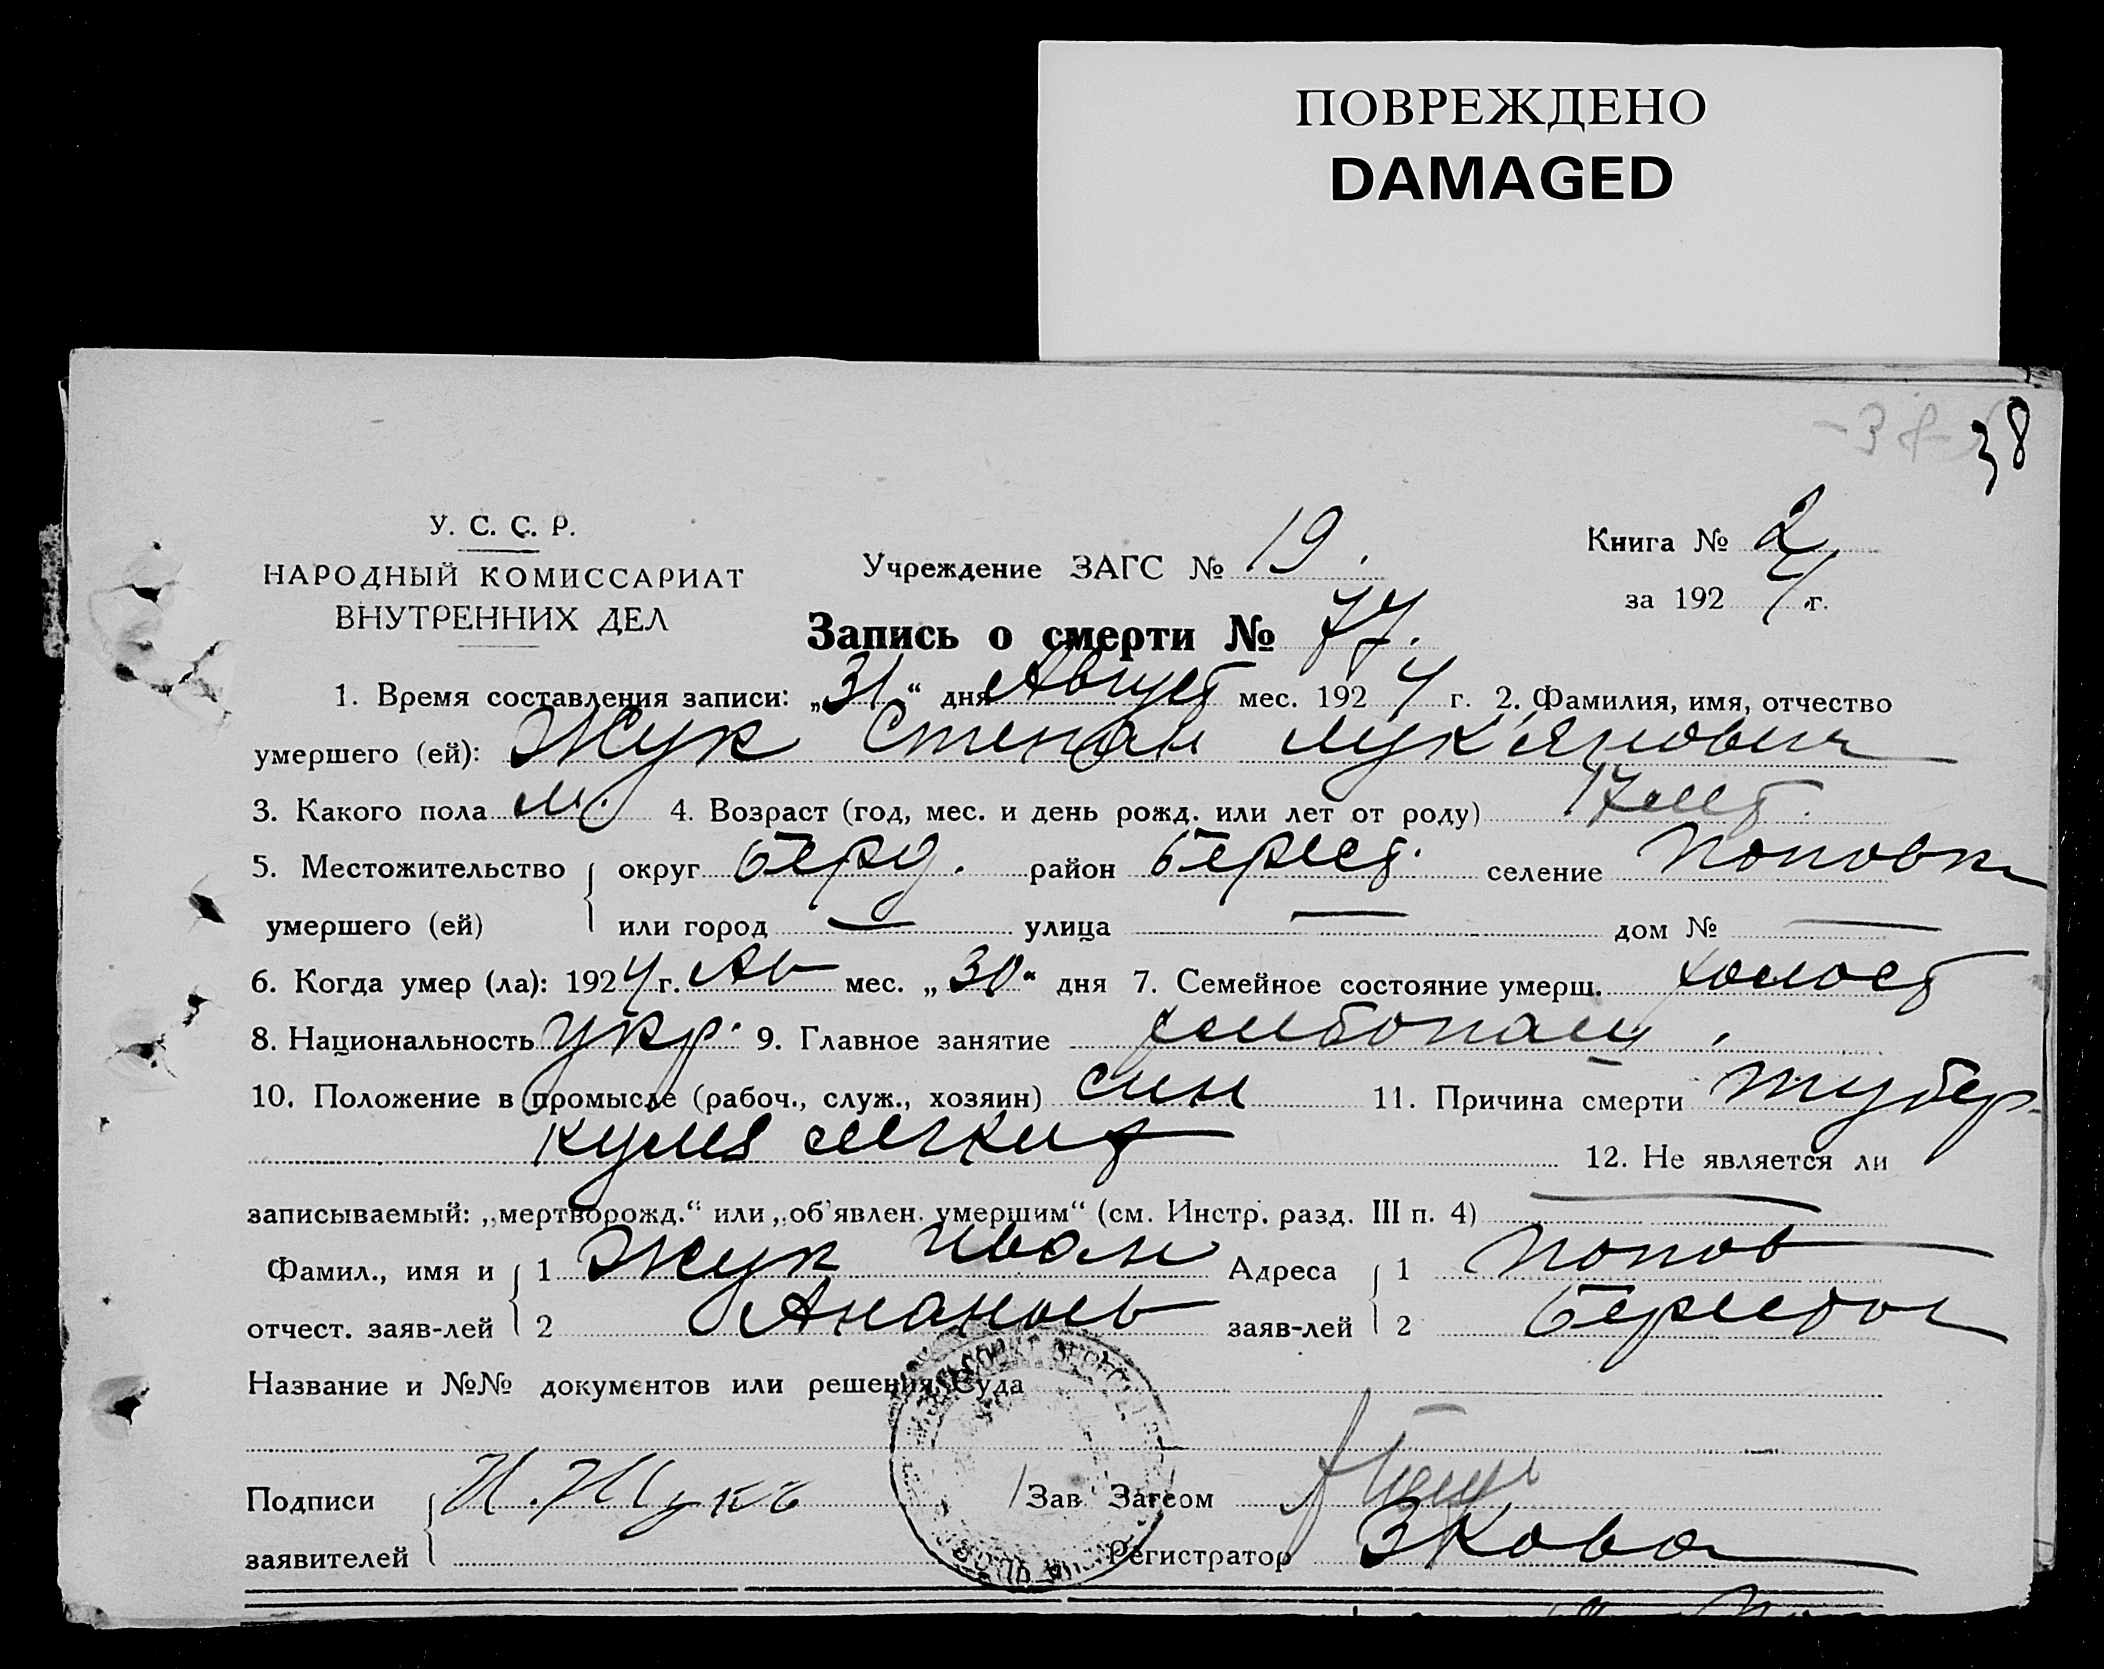 ПОВРЕЖДЕНО
DAMAGED
38
У. С. С. Р.
НАРОДНЫЙ КОМИССАРИАТ
ВНУТРЕННИХ ДЕЛ
Учреждение ЗАГС № 19.
Книга № 2
за 1924 г.
Запись о смерти № 77.
1. Время составления записи: „31“ дня Август мес. 1924 г. 2. Фамилия, имя, отчество
умершего (ей): Жук Степан Лук'янович
3. Какого пола м. 4. Возраст (год, мес. и день рожд. или лет от роду) 17 лет.
5. Местожительство округ Берд. район Берест. селение Поповка
умершего (ей) или город — улица — дом № —
6. Когда умер (ла): 1924 г. Ав мес. „30“ дня 7. Семейное состояние умерш. холост
8. Национальность укр. 9. Главное занятие хлибопаш.
10. Положение в промысле (рабоч., служ., хозяин) син 11. Причина смерти тубер-
кулез 12. Не является ли
записываемый: „мертворожд.“ или „об'явлен. умершим“ (см. Инстр. разд. III п. 4) —
Фамил., имя и 1 Жук Иван Адреса 1 Попов
отчест. заяв-лей 2 Ананьев заяв-лей 2 Берестов
Название и №№ документов или решения Суда
Подписи И. Жукъ Зав Загсом
заявителей Регистратор